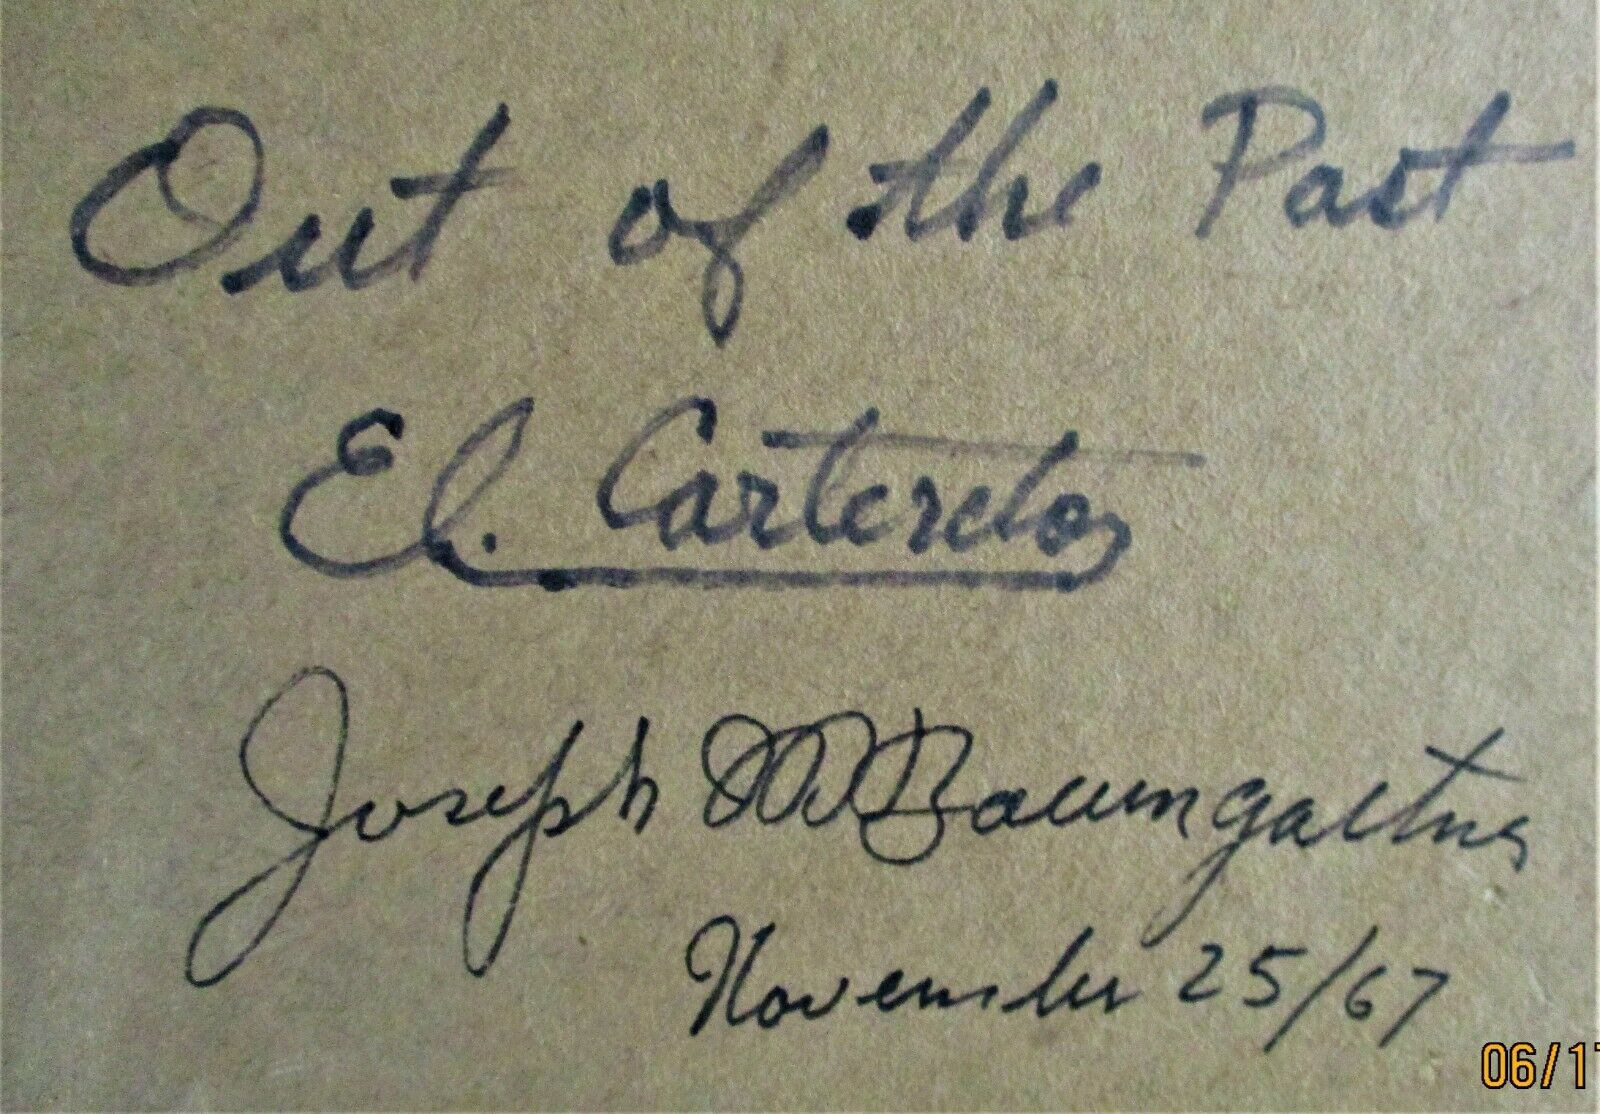 Out of the Past
El. Carreto
Joseph W Baumgartner
November 25/67
06/17